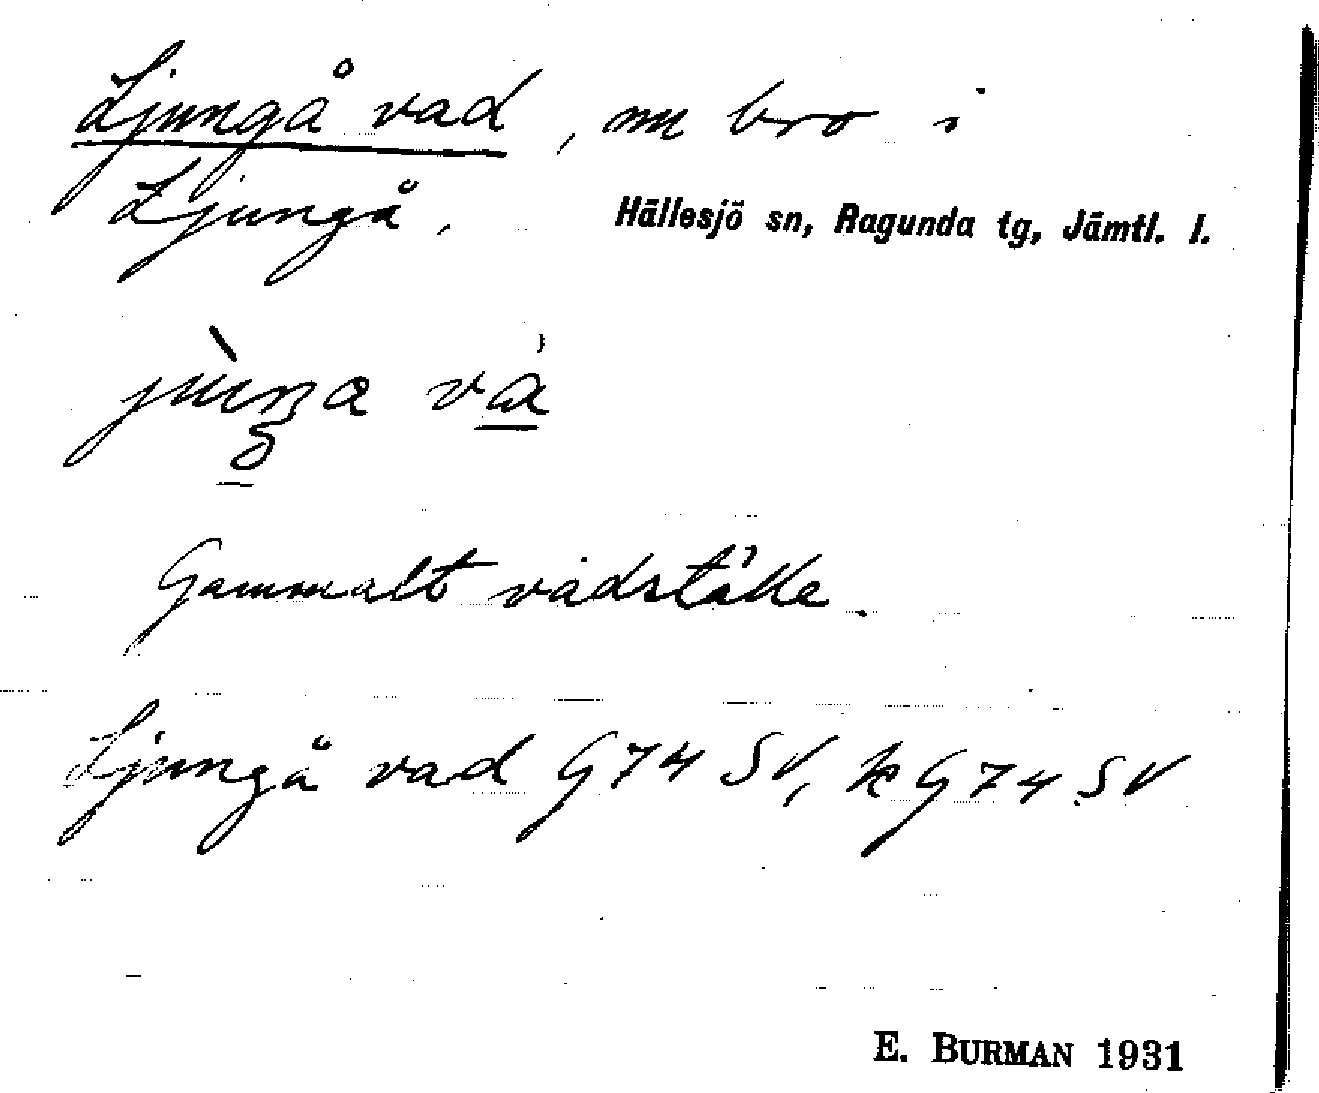 Ljungå vad, nu bro i
Ljungå.
Hällesjö sn, Ragunda tg, Jämtl. l.
Gammalt vadställe.
Ljungå vad G74 SV, k G74 SV
E. BURMAN 1931